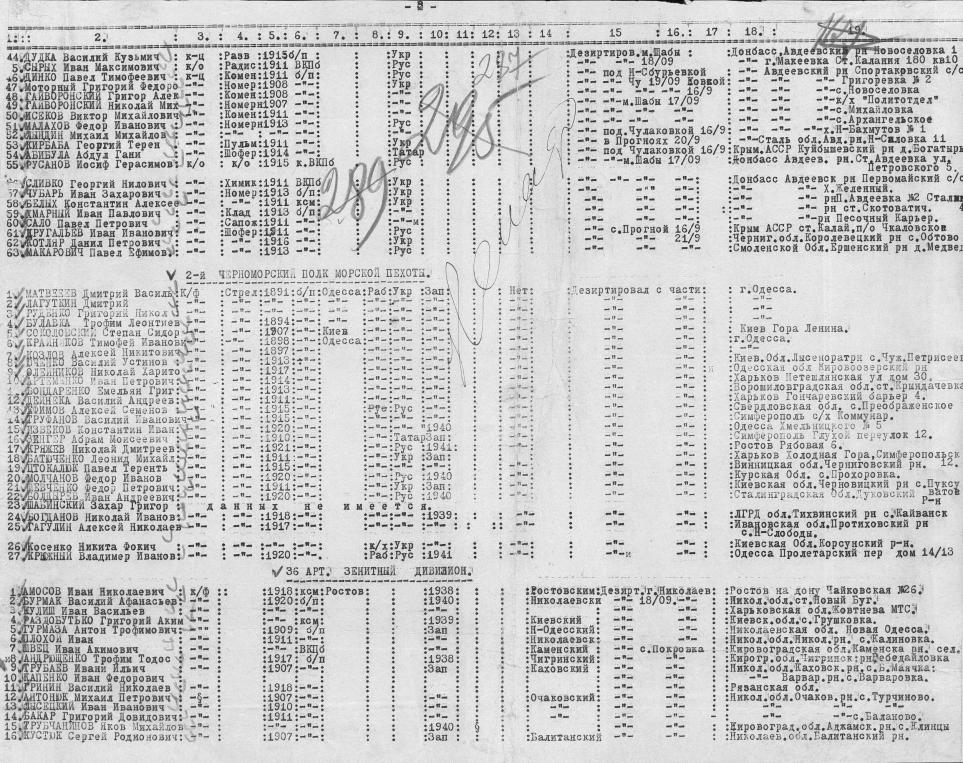 - 3 -
1. 2. 3. 4. 5. 6. 7. 8. 9. 10: 11: 12: 13: 14 15 16.: 17 18.: 19.
44. ДУДКА Василий Кузьмич : к-ц :Разв :1915 б/п : Укр Дезертиров.м.Шабы :Донбасс.Авдеевский рн Новоселовка 1
5. СЫРЫХ Иван Максимович : к/о :Радис:1911 ВКПб :Рус -"- 18/09 г.Макеевка Ст.Калания 180 кв10
46. ДИНКО Павел Тимофеевич : к-ц :Комен:1911 б/п: :Рус под Н-Сбурьевкой Авдеевский рн Спартаковский с/с
47. Моторный Григорий Федоро -"- :Номер:1908 :Укр -"- Чу 19/09 Ювкой Григоревка № 2
48. ГАЙВОРОНСКИЙ Григор Алек -"- :Комен:1908 -"- под Чулаковкой 16/9 -"- с.Новоселовка
49. ГАЙВОРОНСКИЙ Николай Мих -"- Номерн1907 -"- -"- м.Шабы 17/09 -"- к/х "Политотдел"
50. ИСЕКОВ Виктор Михайлович -"- :Комен:1911 -"- -"- с.Михайловка
51. МАЛАХОВ Федор Иванович : -"- :Номерн1913 :Рус -"- -с.Архангельское
52. ЛЯНДИН Михаил Михайлов -"- -"- -"- под.Чулаковкой 16/9 -"- х.Н-Бахмутов № 1
53. КИРБАБА Георгий Терен -"- :Пульм:1911 -"- в Прогноях 20/9 -"- Сталь обл.Авд.рн.Н-Силовка 11
54. АБИБУЛА Абдул Гани -"- :Шофер:1914 Татар под Чулаковкой 16/9 :Крым.АССР Куйбышевский рн д.Богатырь
55. РУСАНОВ Иосиф Герасимов: к/о : к/о :1915 к.ВКПб :Рус -"- м.Шабы 17/09 :Донбасс Авдеев. рн.Ст.Авдеевка ул.
Петровского 5.
СЛИВКО Георгий Нилович : -"- :Химик:1911 ВКПб -"- -"- :Донбасс Авдеевск рн Первомайский с/с
57. ЧУБАРЬ Иван Захарович : -"- :Номер:1913 б/п: -"- -"- Х.Желенный.
58. БЕЛЫХ Константин Алексее -"- -"- :1911 ксм: -"- -"- рнП.Авдеевка №2 Сталин
59. ХМАРНЫЙ Иван Павлович : -"- :Клад :1913 б/п: -"- -"- рн ст.Скотоватич. 4
60. САЛО Павел Петрович : -"- :Сапож:1911 -"- -"- -"- -"-рн Песочный Карьер.
61. КРУГАЛЬЕВ Иван Иванович: -"- :Шофер:1911 :Рус -"- с.Прогной 16/9 :Крым АССР ст.Калай,п/о Чкаловское
62. КОТЛЯР Данил Петрович : -"- -"- :1916 :Укр -"- 21/9 :Черниг.обл.Королевецкий рн с.Обтово
63. МАКАРОВИЧ Павел Ефимов: -"- -"- :1913 :Рус -"- -"- :Смоленской Обл.Кршенский рн д.Медвед
239 295 237
2-й ЧЕРНОМОРСКИЙ ПОЛК МОРСКОЙ ПЕХОТЫ.
1. МАТВЕЕВ Дмитрий Василь: К/ф :Стрел:1891:б/п:Одесса:Раб:Укр :Зап: :Нет: :Дезкртировал с части: : г.Одесса.
2. ЛАГУТКИН Дмитрий : -"- : -"- : -"- : -"- : -"- : -"-
3. РУДЕНКО Григорий Никол : -"- : -"- : -"- : -"- : -"- : -"-
4. БУЛАВКА Трофим Леонтиев: -"- : -"- :1894: -"- : -"- : -"-
5. СОКОЛОВСКИЙ Степан Сидор: -"- : -"- :1907: -"- :Киев : -"- : Киев Гора Ленина.
6. КРАЙНИКОВ Тимофей Иванови: -"- : -"- :1898: -"- :Одесса: -"- : г.Одесса.
7. КОЗЛОВ Алексей Никитович : -"- : -"- :1897: -"- : -"- : -"-
8. ЮЧЕНКО Василий Устинов : -"- : -"- :1913: -"- : -"- : Киев.Обл.Лысеноратрн с.Чуж.Петрисеев
9. ОЛЕЙНИКОВ Николай Харито: -"- : -"- :1917: -"- : -"- : Одесская обл Кировоозерский рн
10. АРТЕМЕНКО Иван Петрович: -"- : -"- :1914: -"- : -"- : Харьков Нетешлянская ул дом 30.
11. БОНДАРЕНКО Емельян Григ: -"- : -"- :1913: -"- : -"- : Воромиловградская обл.ст.Крындачевка
12. ДЕЙНЕКА Василий Андреев: -"- : -"- :1911: -"- : -"- : Харьков Гончаревский барьер 4.
13. ЕФИМОВ Алексей Семенов : -"- : -"- :1915: -"- : Рус:Рус : Свердловская обл. с.Преображенское
14. ТРУФАНОВ Василий Иванович: -"- : -"- :1915: -"- : -"- : Симферополь с/х Коммунар.
15. ИЗВЕКОВ Константин Иван: -"- : -"- :1920: -"- : -"- :1940 : Одесса Хмельницкого № 5
16. ЗИНГЕР Абрам Моисеевич : -"- : -"- :1910: -"- : Татар Зап: : Симферополь Глухой переулок 12.
17. КРЯЖЕВ Николай Дмитреев: -"- : -"- :1921: -"- : -"- :Рус :1941: : Ростов Рябовая 6.
18. БАТЮЧЕНКО Леонид Михайл: -"- : -"- :1911: -"- : -"- :Укр :Зап: : Харьков Холодная Гора,Симферопольск
19. ЦТОКАЛЮК Павел Теренть : -"- : -"- :1915: -"- : -"- : Винницкая обл.Черниговский рн. 12.
20. МОЛЧАНОВ Федор Иванов : -"- : -"- :1920: -"- : -"- :Рус :1940 : Курская Обл. с.Прохоровка
21. ШЕВЧЕНКО Федор Петрович: -"- : -"- :1911: -"- : -"- :Укр :Зап: : Киевская Обл.Черновицкий рн с.Пуксу
22. БОЛДЫРЕВ Иван Андреевич: -"- : -"- :1920: -"- : -"- :Рус :1940 : Сталинградская Обл.Дуковский ватов
23. ШАБИНСКИЙ Захар Григор : данных не имеется. Р-н
24. БОГДАНОВ Николай Иванов: -"- : -"- :1918: -"- : -"- :1939: : ЛГРД обл.Тихвинский рн с.Кайванск
25. ГАГУЛИН Алексей Николаев -"- : -"- :1917: -"- : -"- : Ивановская обл.Протиховский рн
с.Н-Слободы.
26. Косенко Никита Фокич : -"- : -"- : -"- : к/х:Укр : Киевская Обл.Корсунский р-н.
27. КРЯЖНЫЙ Владимир Иванов: -"- : -"- :1920: -"- : Раб:Рус :1941 -"- : Одесса Пролетарский пер дом 14/13
36 АРТ. ЗЕНИТНЫЙ ДИВИЗИОН.
1. АМОСОВ Иван Николаевич : к/ф :: :1918:ксм:Ростов: :1938: :Ростовским:Дезирт.г.Николаев: :Ростов на дону Чайковская №26.
2. БУРМАК Василий Афанасьев: -"- :1920:б/п: :1940: :Николаевски -"- 18/09.-"- :Никол.обл.ст.Новый Буг.
3. КУДИШ Иван Васильев : -"- -"- -"- :Харьковская обл.Жовтнева МТС.
4. РАЗДОБУТЬКО Григорий Аким -"- ксм: :1939: :Киевский -"- :Киевск.обл.с.Грушковка.
5. ГУРМАЗА Антон Трофимович: -"- :1909: б/п :Зап :Н-Одесский: -"- :Николаевская обл. Новая Одесса.
6. ПЛОХОЙ Иван : -"- :1911:-"- -"- :Николаевск: -"- :Никол.обл.Никол.рн. с.Калиновка.
7. ШВЕЦ Иван Акимович : -"- -"- :ВКПб -"- :Каменский -"- с.Покровка :Кировоградская обл.Каменска рн. сел.
8. АНДРЮЩЕНКО Трофим Тодос : -"- :1917 б/п :1938: :Чигринский: -"- :Кирогр.обл.Чигринск:рн.Тебедайловка
9. ТРУБАЕВ Ивани Ильич : -"- :1907:-"- :Зап :Каховский -"- :Никол.обл.Каховск.рн.с.Б.Маячка:
10. КАПЕНКО Иван Федорович : -"- -"- -"- -"- -"- Варвар.рн.с.Варваровка.
11. ГРИНИН Василий Николаев : -"- :1918:-"- -"- Рязванская обл.
12. АНТОНЮК Михаил Петрович: -"- :1907:-"- -"- :Очаковский: -"- :Никол.обл.Очаков.рн.с.Турчиново.
13. ЛЫСЕЦКИЙ Иван Иванович : -"- :1910:-"- -"- -"- -"-
14. БАКАР Григорий Довидович: -"- :1911:-"- -"- -"- -"- -"-с.Баданово.
15. ТРУБЧАНИНОВ Яков Михайлов -"- -"- :1940: -"- :Кировоград.обл.Аджамск.рн.с.Клинцы
16. КУСТЮК Сергей Родионович: -"- :1907: :Зап :Балитанский -"- :Николаев.обл.Балитанский рн.